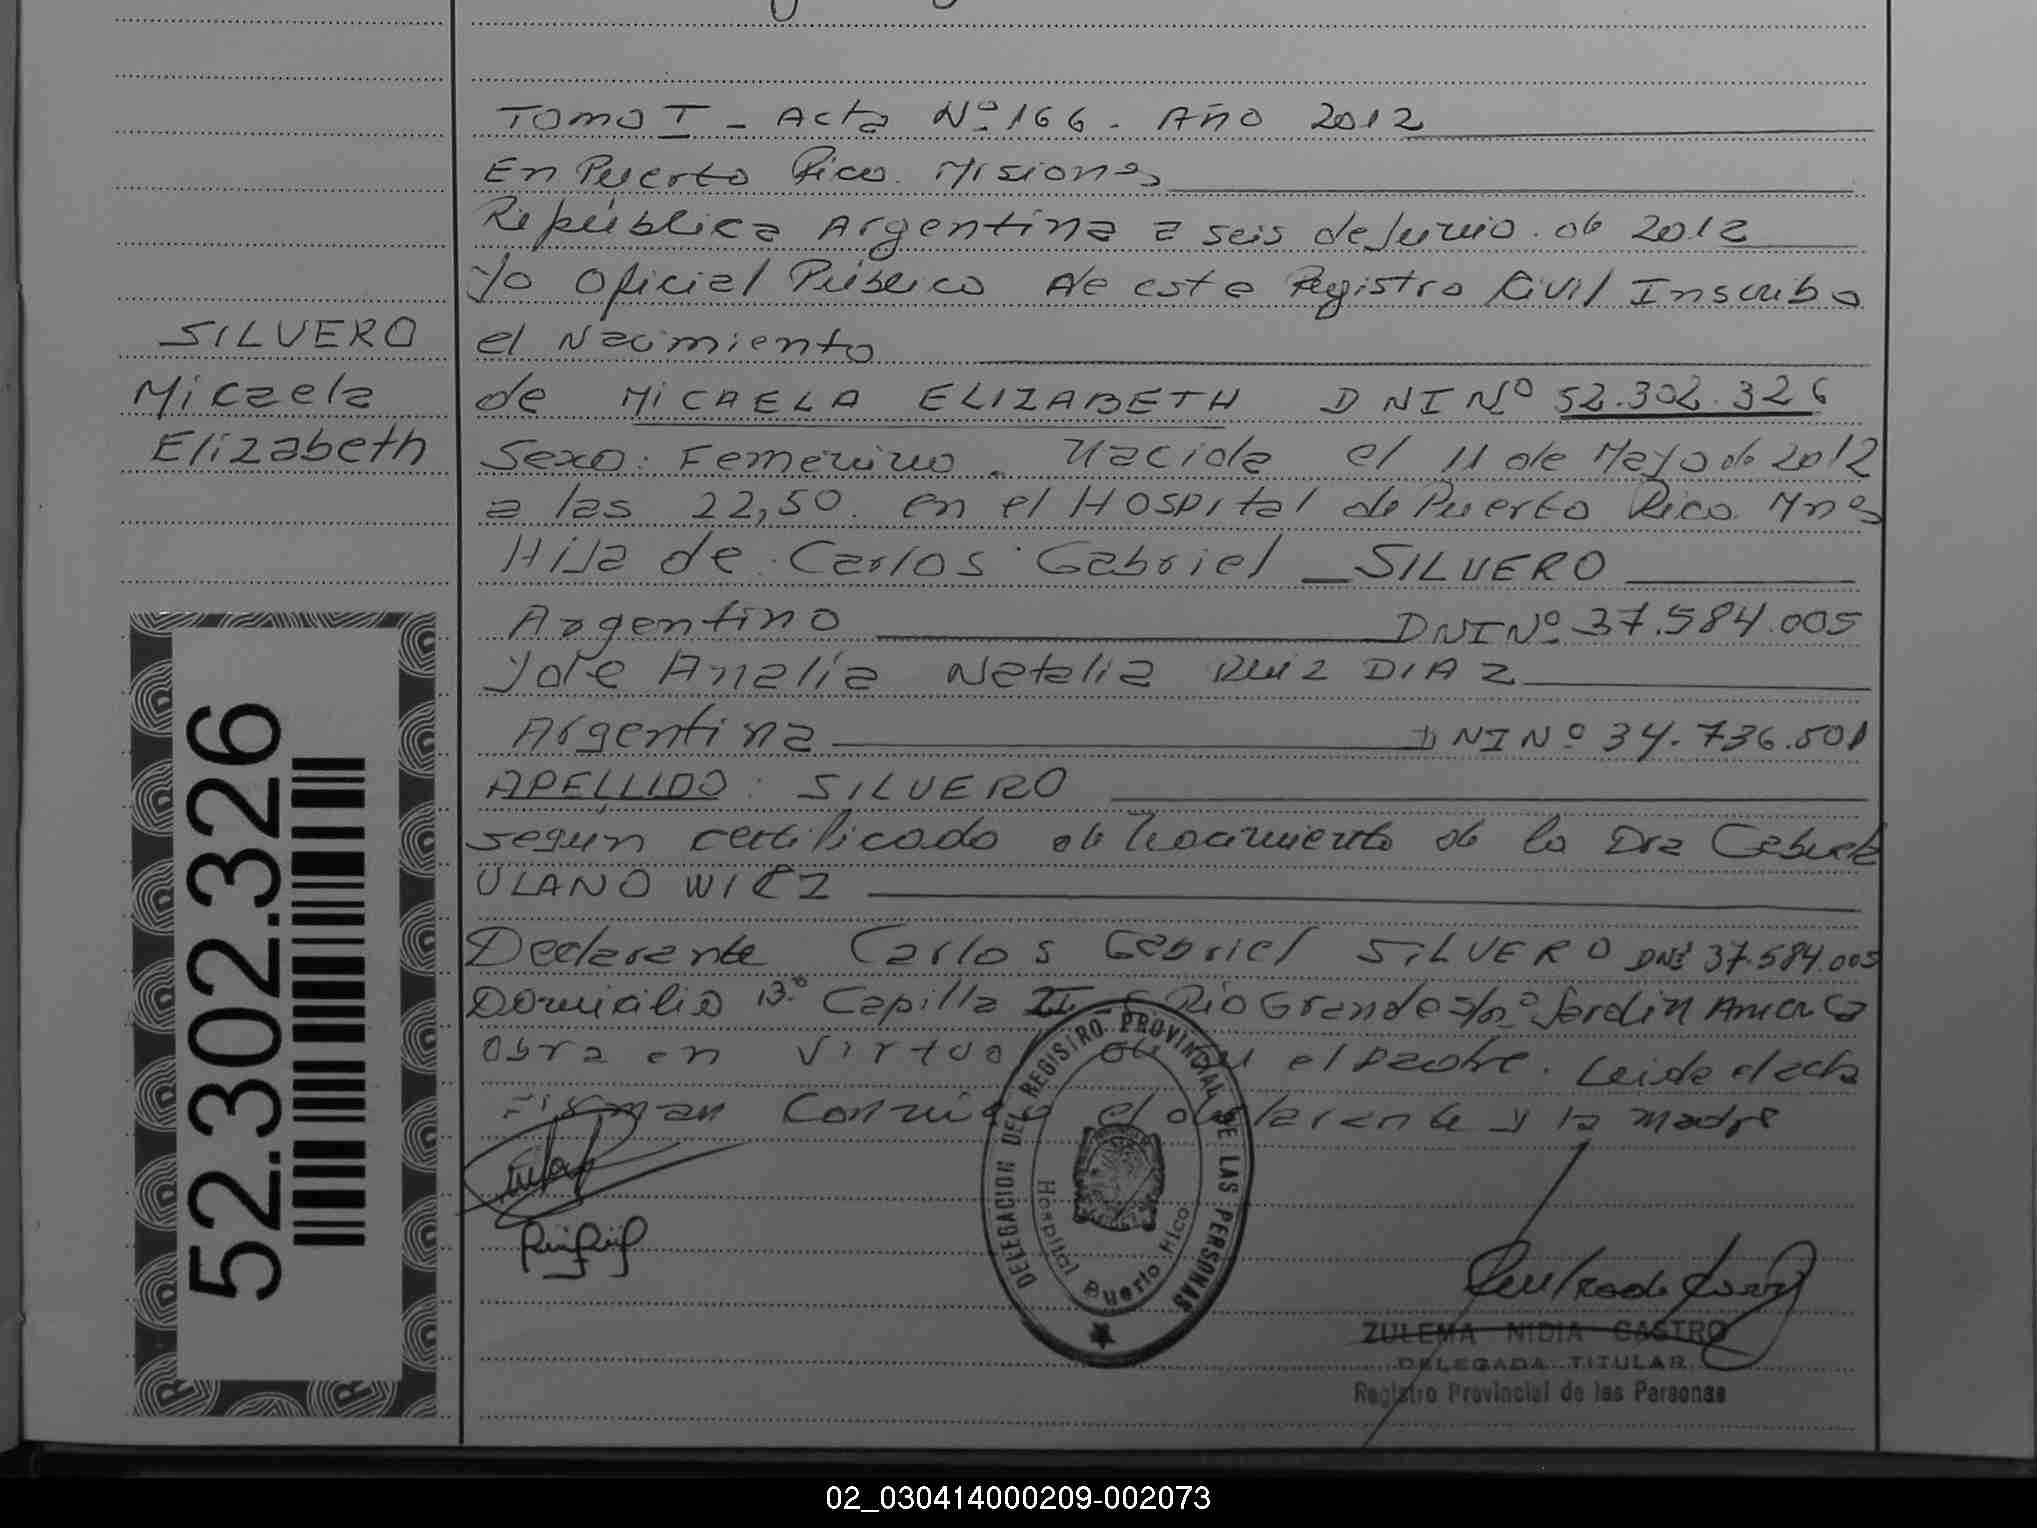 Tomo I - Acta Nº 166. Año 2012
En Puerto Rico. Misiones
República Argentina a seis de Junio de 2012
Yo Oficial Público de este Registro Civil Inscribo
el Nacimiento
SILVERO
Micaela
Elizabeth
de MICAELA ELIZABETH DNI Nº 52.302.326
Sexo: Femenino. Nacida el 11 de Mayo de 2012
a las 22,50. en el Hospital de Puerto Rico. Mnes
Hija de Carlos Gabriel SILVERO
Argentino DNI Nº 37.584.005
y de Analía Natalia RUIZ DIAZ
Argentina DNI Nº 34.736.501
APELLIDO: SILVERO
según certificado de nacimiento de la Dra Gabriela
ULANOWICZ
Declarante Carlos Gabriel SILVERO DNI 37.584.005
Domicilio Bº Capilla II Río Grande s/nº Jardín América
Obra en virtud de el padre. Leída el acta
Firman conmigo el declarante y la madre
52.302.326
DELEGACION DEL REGISTRO PROVINCIAL DE LAS PERSONAS
Hospital Puerto Rico
ZULEMA NIDIA CASTRO
DELEGADA TITULAR
Registro Provincial de las Personas
02_030414000209-002073